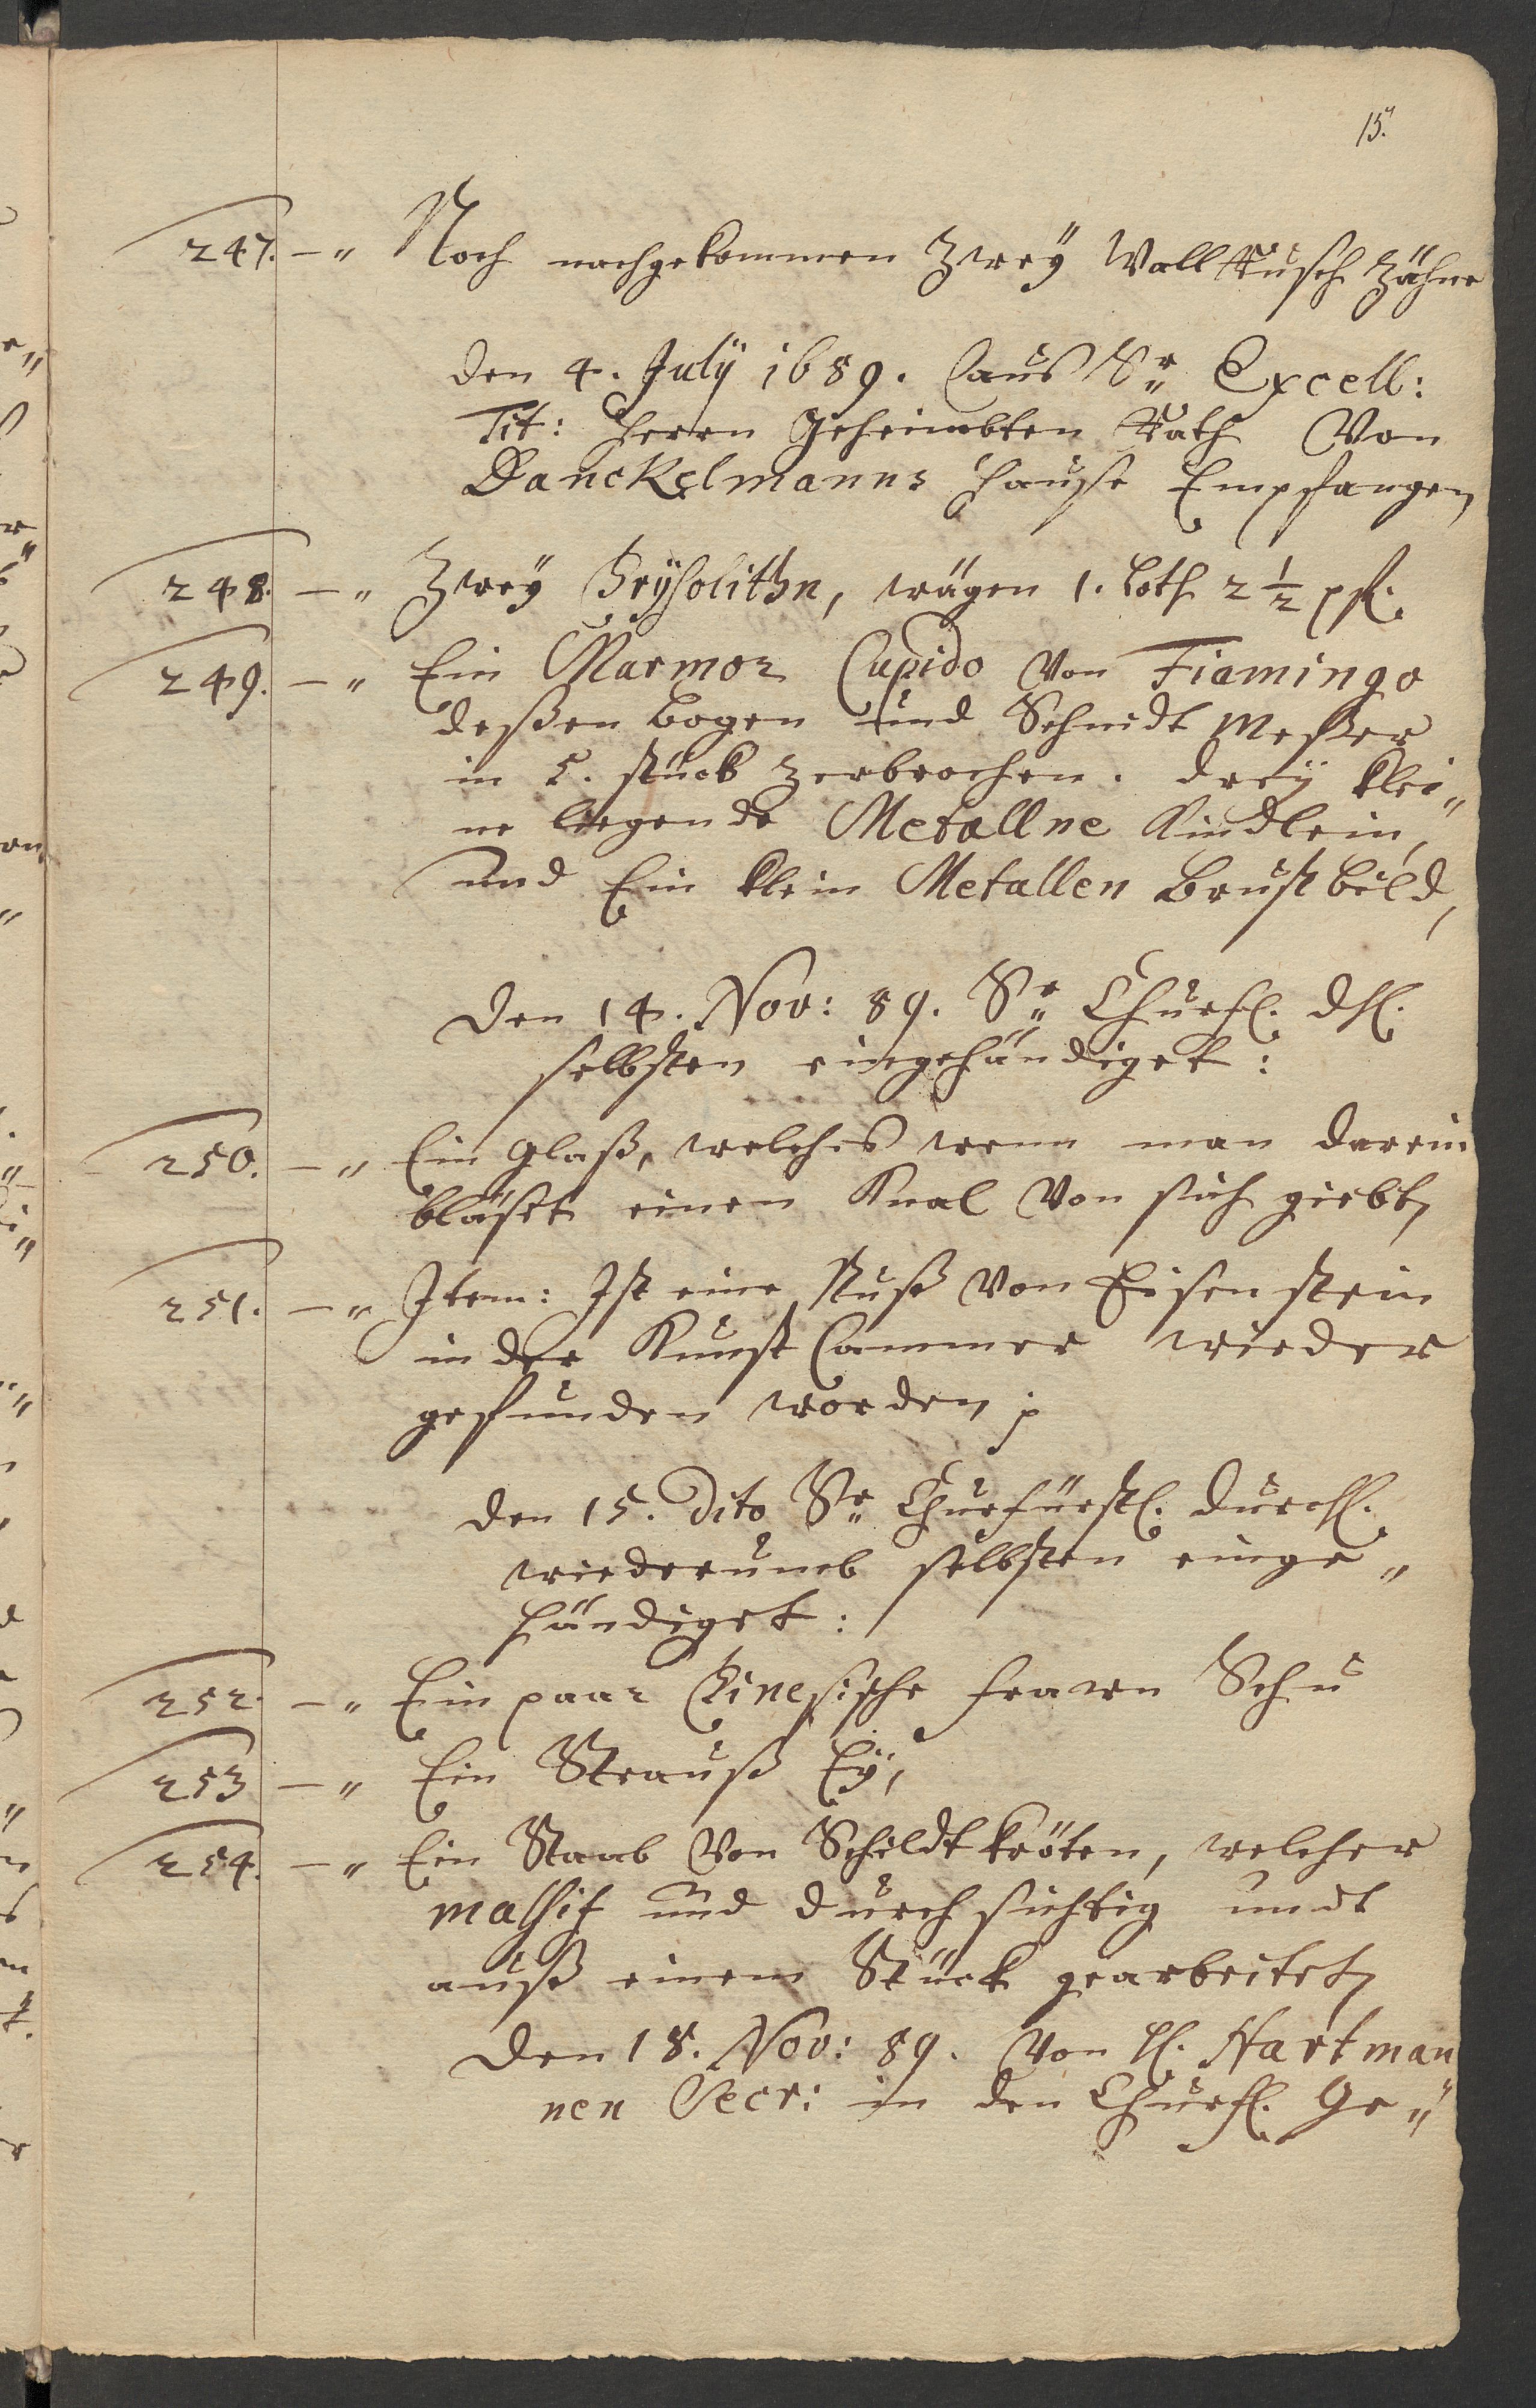 15.
247. — " Noch nachgekommen Zweÿ Wallrusch Zähne
den 4. Julÿ 1689. aus Sr. Excell:
Tit: Herrn Geheimbten Rath Von
Danckelmanns Hause Empfangen,
248. — " Zweÿ Crÿsolithn, wägen 1. Loth 2 ½
249. — " Ein Marmor Cupido von Fiamingo
deßen Bogen und Schnidt Meßer
in 5. stück zerbrochen. dreÿ klei"
ne liegende Metallne Kindlein,
und Ein klein Metallen Brustbild,
den 14. Nov: 89. Sr. Churfl. dhl.
selbsten eingehändiget:
250. — " Ein Glaß, welches wenn man darein
bläset einen Knal Von sich giebt,
251. — " Item: Ist eine Stuß Von Eisenstein
in der Kunst Cammer wieder
gefunden worden;
den 15. dito Sr. Churfürstl. Durchl.
wiederumb selbsten einge"
händiget:
252. — " Ein paar Chinesische frawn Schu
253 — " Ein Strauß Eÿ,
254. — " Ein Staab Von Schildtkröten, welcher
massif und durchsichtig undt
auß einem Stück gearbeitet,
den 18. Nov: 89. Von H. Hartman
nen Secr: in den Churfl. Ge"